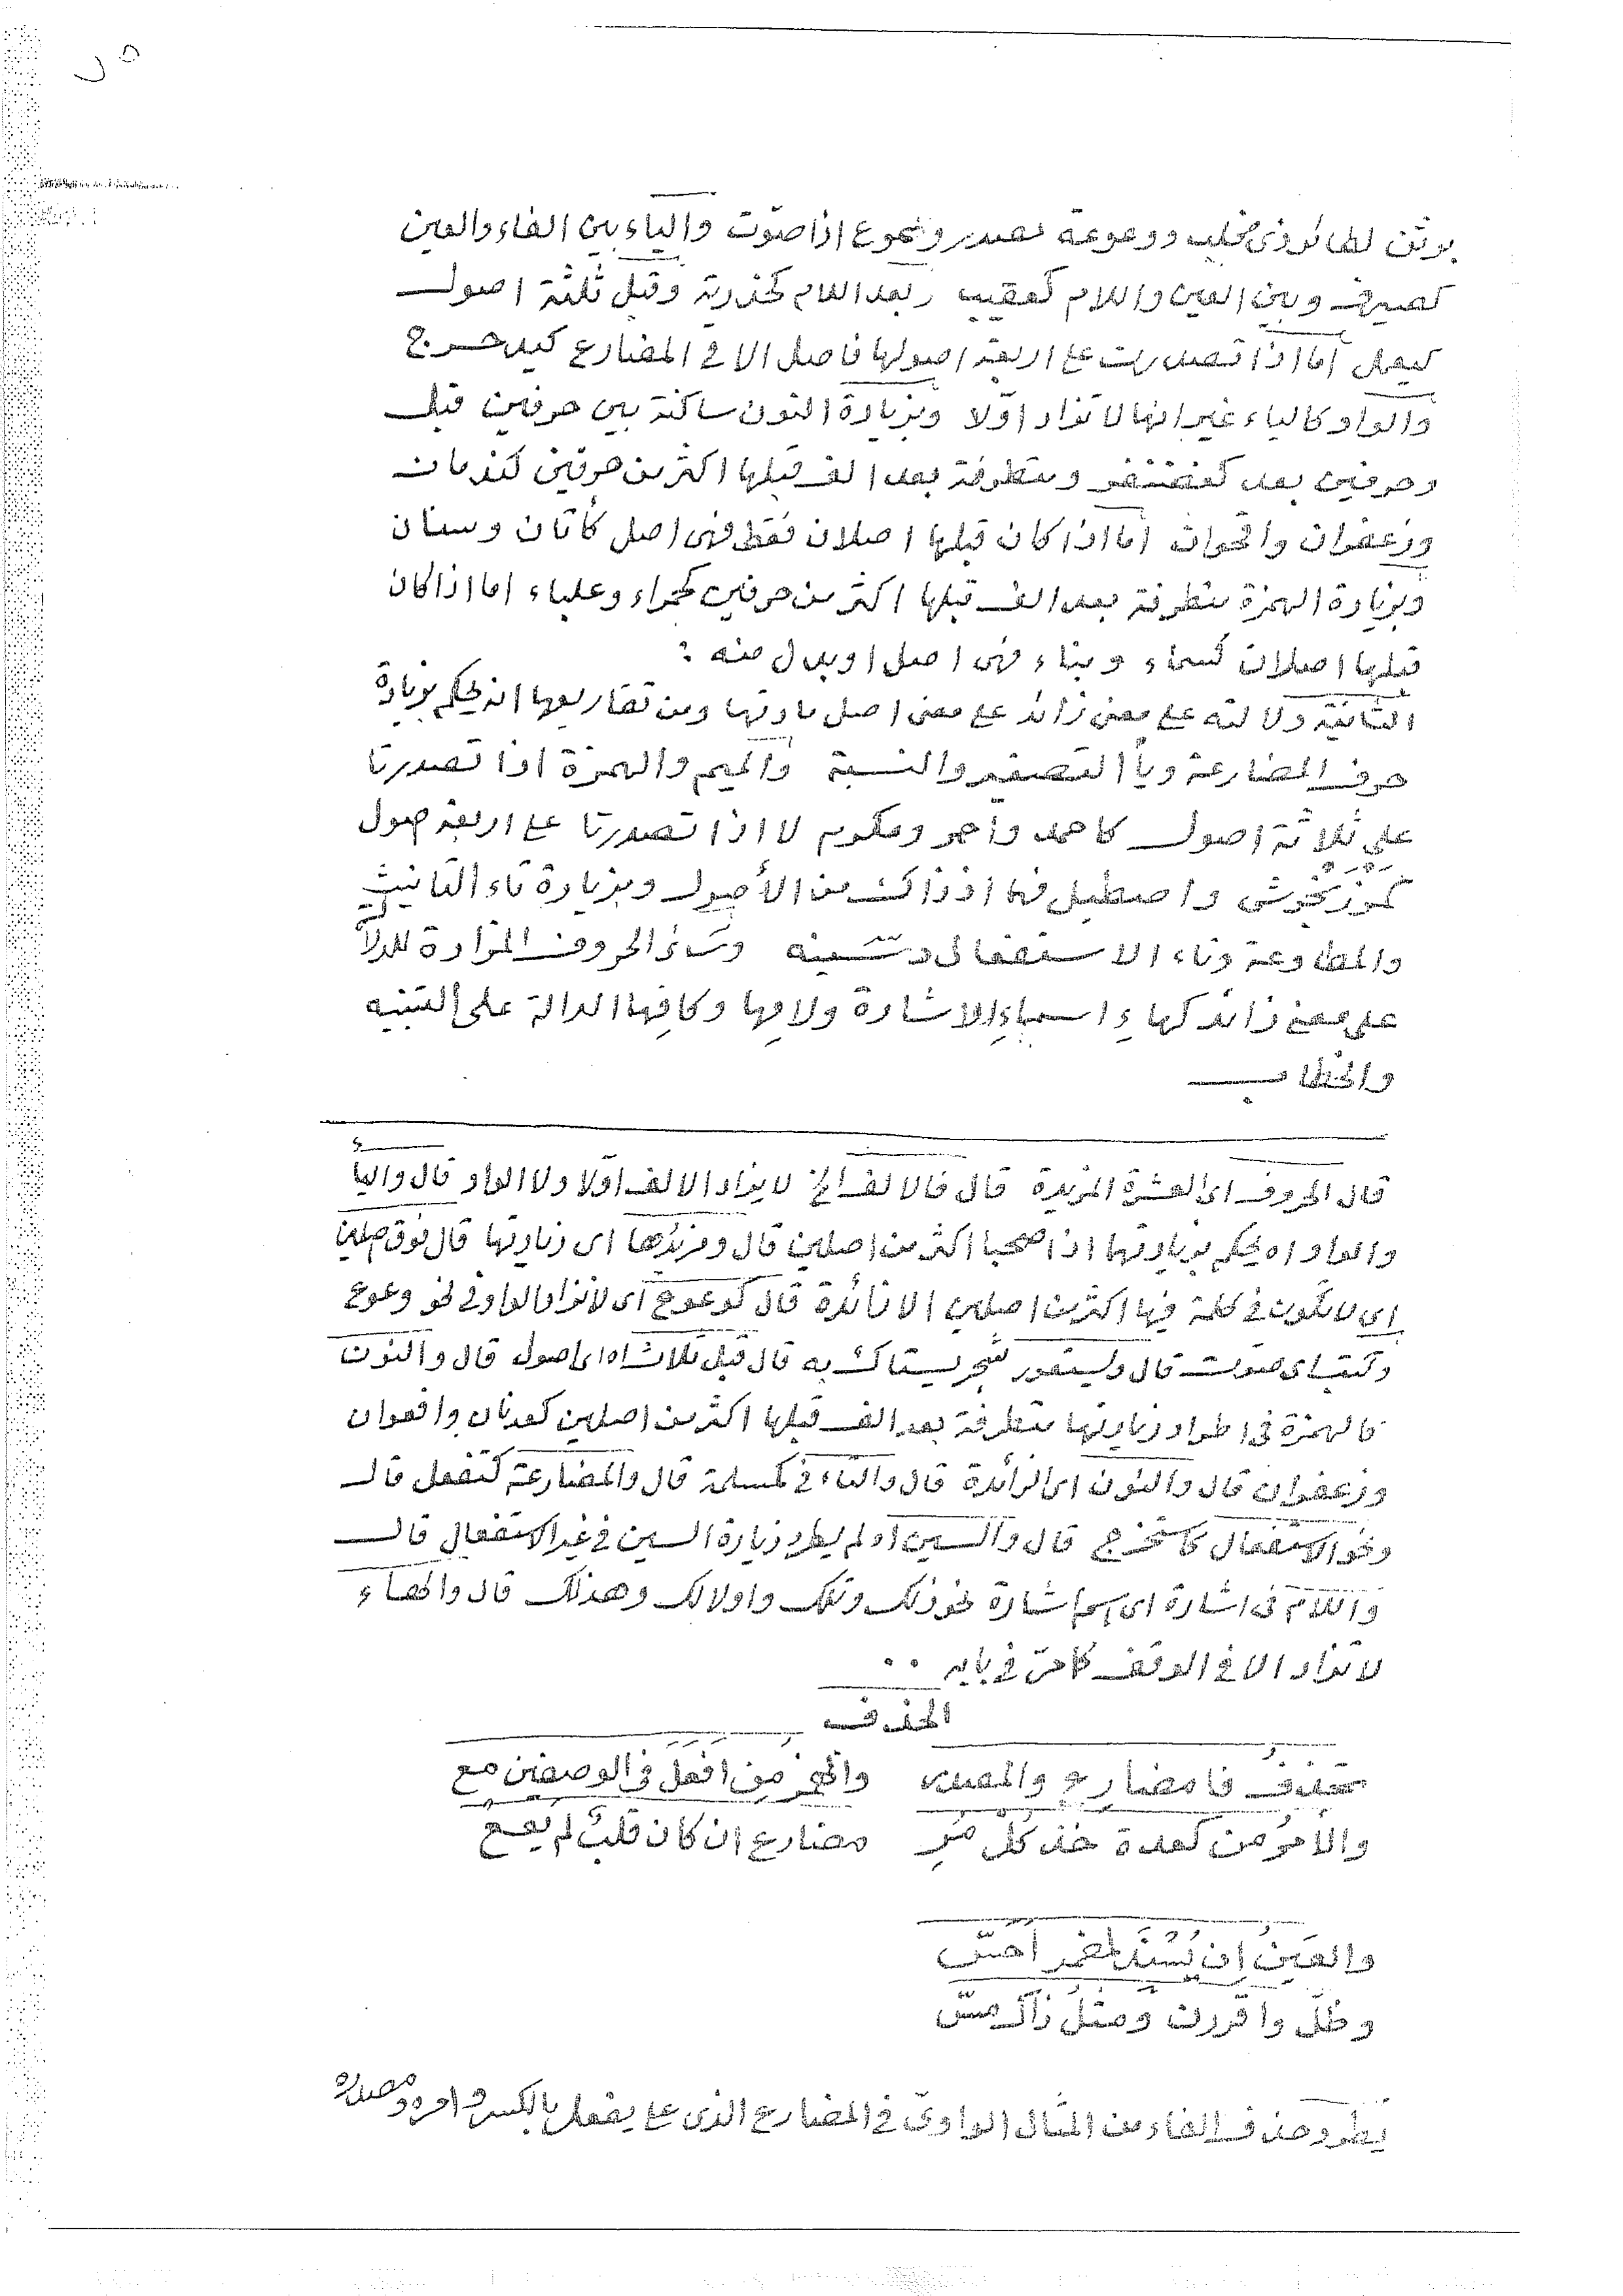 يؤيؤ لطائر ذى مخلب ووعوعة مصدر وعوع اذا صوت والياء بين الفاء والعين
كصيرف وبين العين واللام كقضيب وبعد اللام كحذرية وقبل ثلثة اصول
كيعمل أما اذا تصدرت على اربعة اصولها فاصل الا فى المضارع كيدحرج
والواو كالياء غير انها لا تزاد اوّلا وبزيادة النون ساكنة بين حرفين قبل
وحرفين بعد كغضنفر ومتطرفة بعد الف قبلها اكثر من حرفين كندمان
وزعفران واقحوان اما اذا كان قبلها اصلان فقط فهى اصل كأتان وسنان
وبزيادة الهمزة متطرفة بعد الف قبلها اكثر من حرفين كحمراء وعلباء اما اذا كان
قبلها اصلان كسماء وبناء فهى اصل او بدل منه :
الثانية دلالته على معنى زائد على معنى اصل مادتها ومن تفاريعها ان يحكم بزيادة
حرف المضارعة ويأ التصغير والنسبة والميم والهمزة اذا تصدرتا
على ثلاثة اصول كاحمد وأحمر ومكرم لا اذا تصدرتا على اربعة اصول
كمرزنجوش واصطبل فهما اذ ذاك من الأصول وبزيادة تاء التانيث
والمطاوعة وتاء الاستفعال وسينه وسائر الحروف المزادة للدلالة
على معنى زائد كهاء اسماء الاشارة ولامها وكافها الدالة على التنبيه
والخطاب
قال الحروف اى العشرة المزيدة قال فالالف الخ لا يزاد الالف اوّلا ولا الواو قال واليا
والواو اه يحكم بزيادتها اذا صحبا اكثر من اصلين قال ومزيدها اى زيادتها قال فوق اصلين
اى لا تكون فى كلمة فيها اكثر من اصلين الا زائدة قال كوعوع اى لا تزاد الواو فى نحو وعوع
قال وليستعور شجر يستاك به قال قبل ثلاث اه اى اصول قال والنون
كالهمزة فى اطراد زيادتها متطرفة بعد الف قبلها اكثر من اصلين كعدنان وافعوان
وزعفران قال والنون اى الزائدة قال والتاء فى كمسلمة قال والمضارعة كتفعل قال
ونحو الاستفعال كاستخرج قال والسين اه لم يطرد زيادة السين فى غير الاستفعال قال
واللام فى اشارة اى اسم اشارة نحو ذلك وتلك واولالك وهذلك قال والهاء
لا تزاد الا فى الوقف كما مرّ فى بابه
الحذف
تحذف فا مضارع والمصدر والهمز من افعل فى الوصفين مع
والأمر من كعدة خذ كل مر مضارع ان كان قلب لم يقع
والعين ان يسند لمضمر أحسّ
وظلّ واقررن ومثل ذاك مسّ
يطرد حذف الفاء من المثال الواوىّ فى المضارع الذى على يفعل بالكسر وامره ومصدره